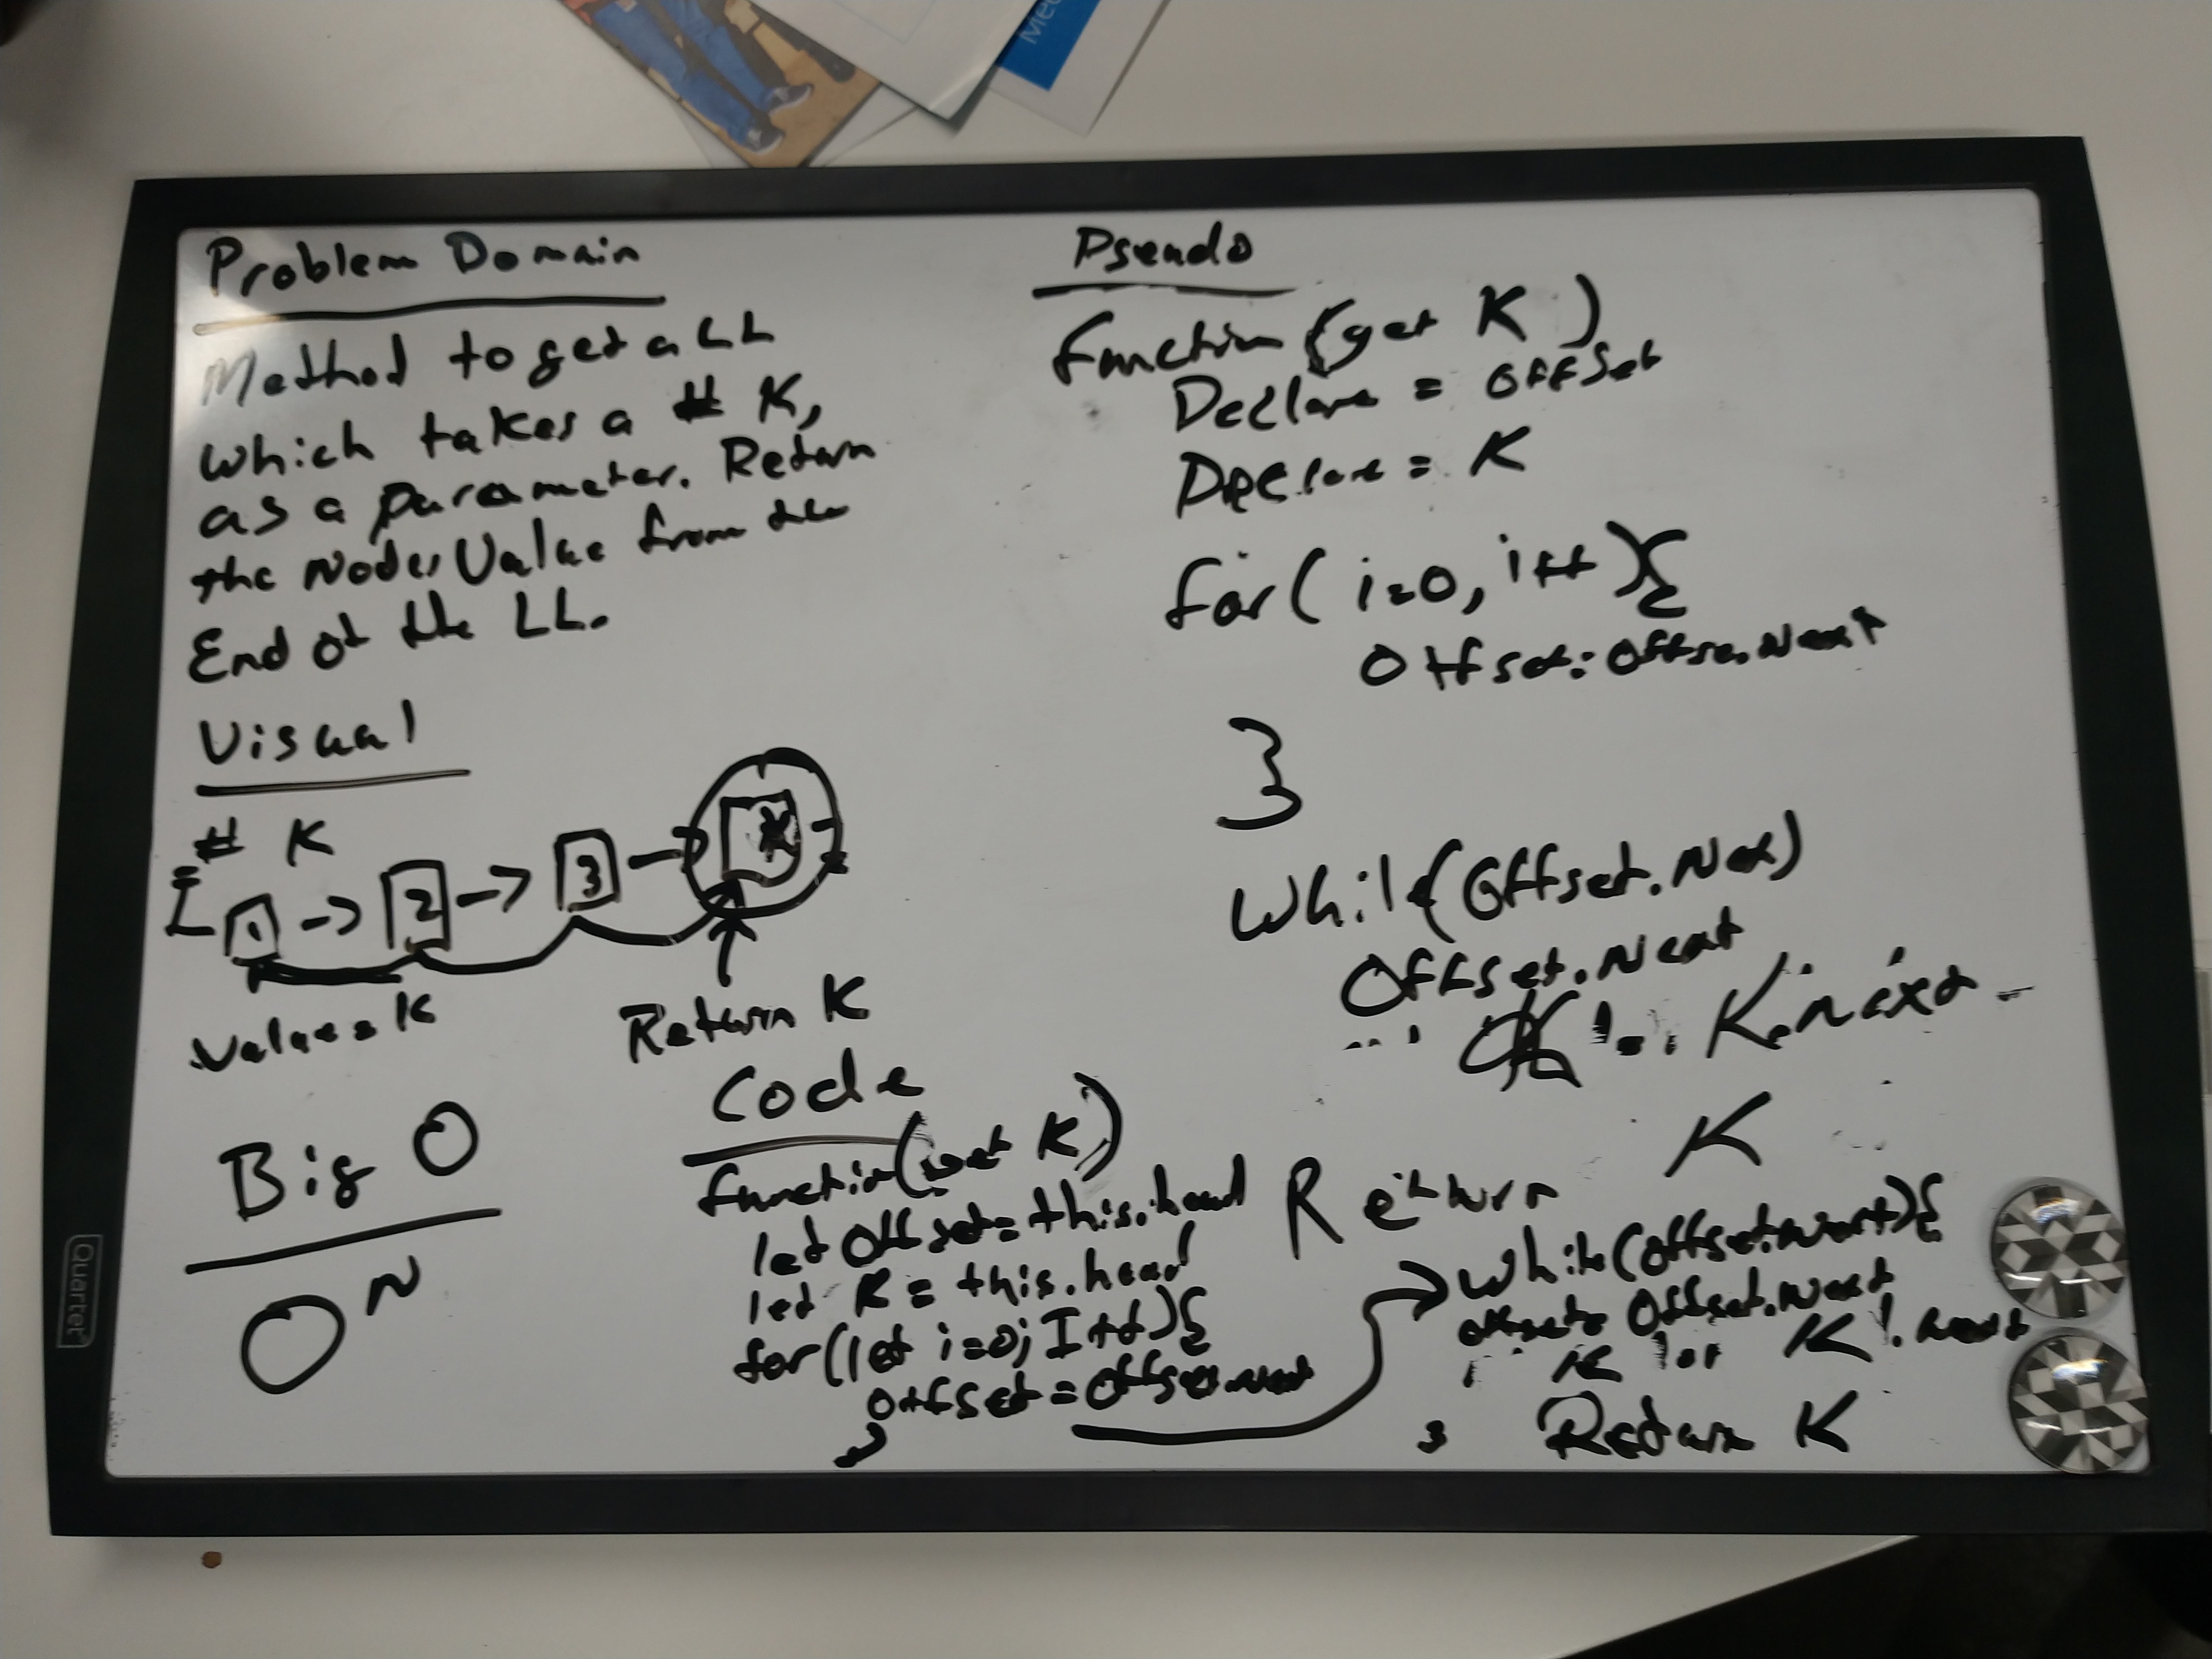 Problem Domain
Method to get a LL
which takes a # K,
as a parameter. Return
the Nodes Value from the
End of the LL.
Visual
# K
1 -> 2 -> 3 ->
Value = K
Return K
Big O
O N
Pseudo
function (get K)
Declare = offset
Declare = K
for( i=0, i++ ){
Offset = Offse.Next
}
While(Offset.Nex)
Offset.Next
K.next
Return K
Code
function(get K)
let Offset = this.head
let K = this.head
for(let i=0; I++){
Offset = Offset.next
}
While(Offset.Next){
offset = Offset.Next
K = K.next
}
Return K
Quartet
Mee